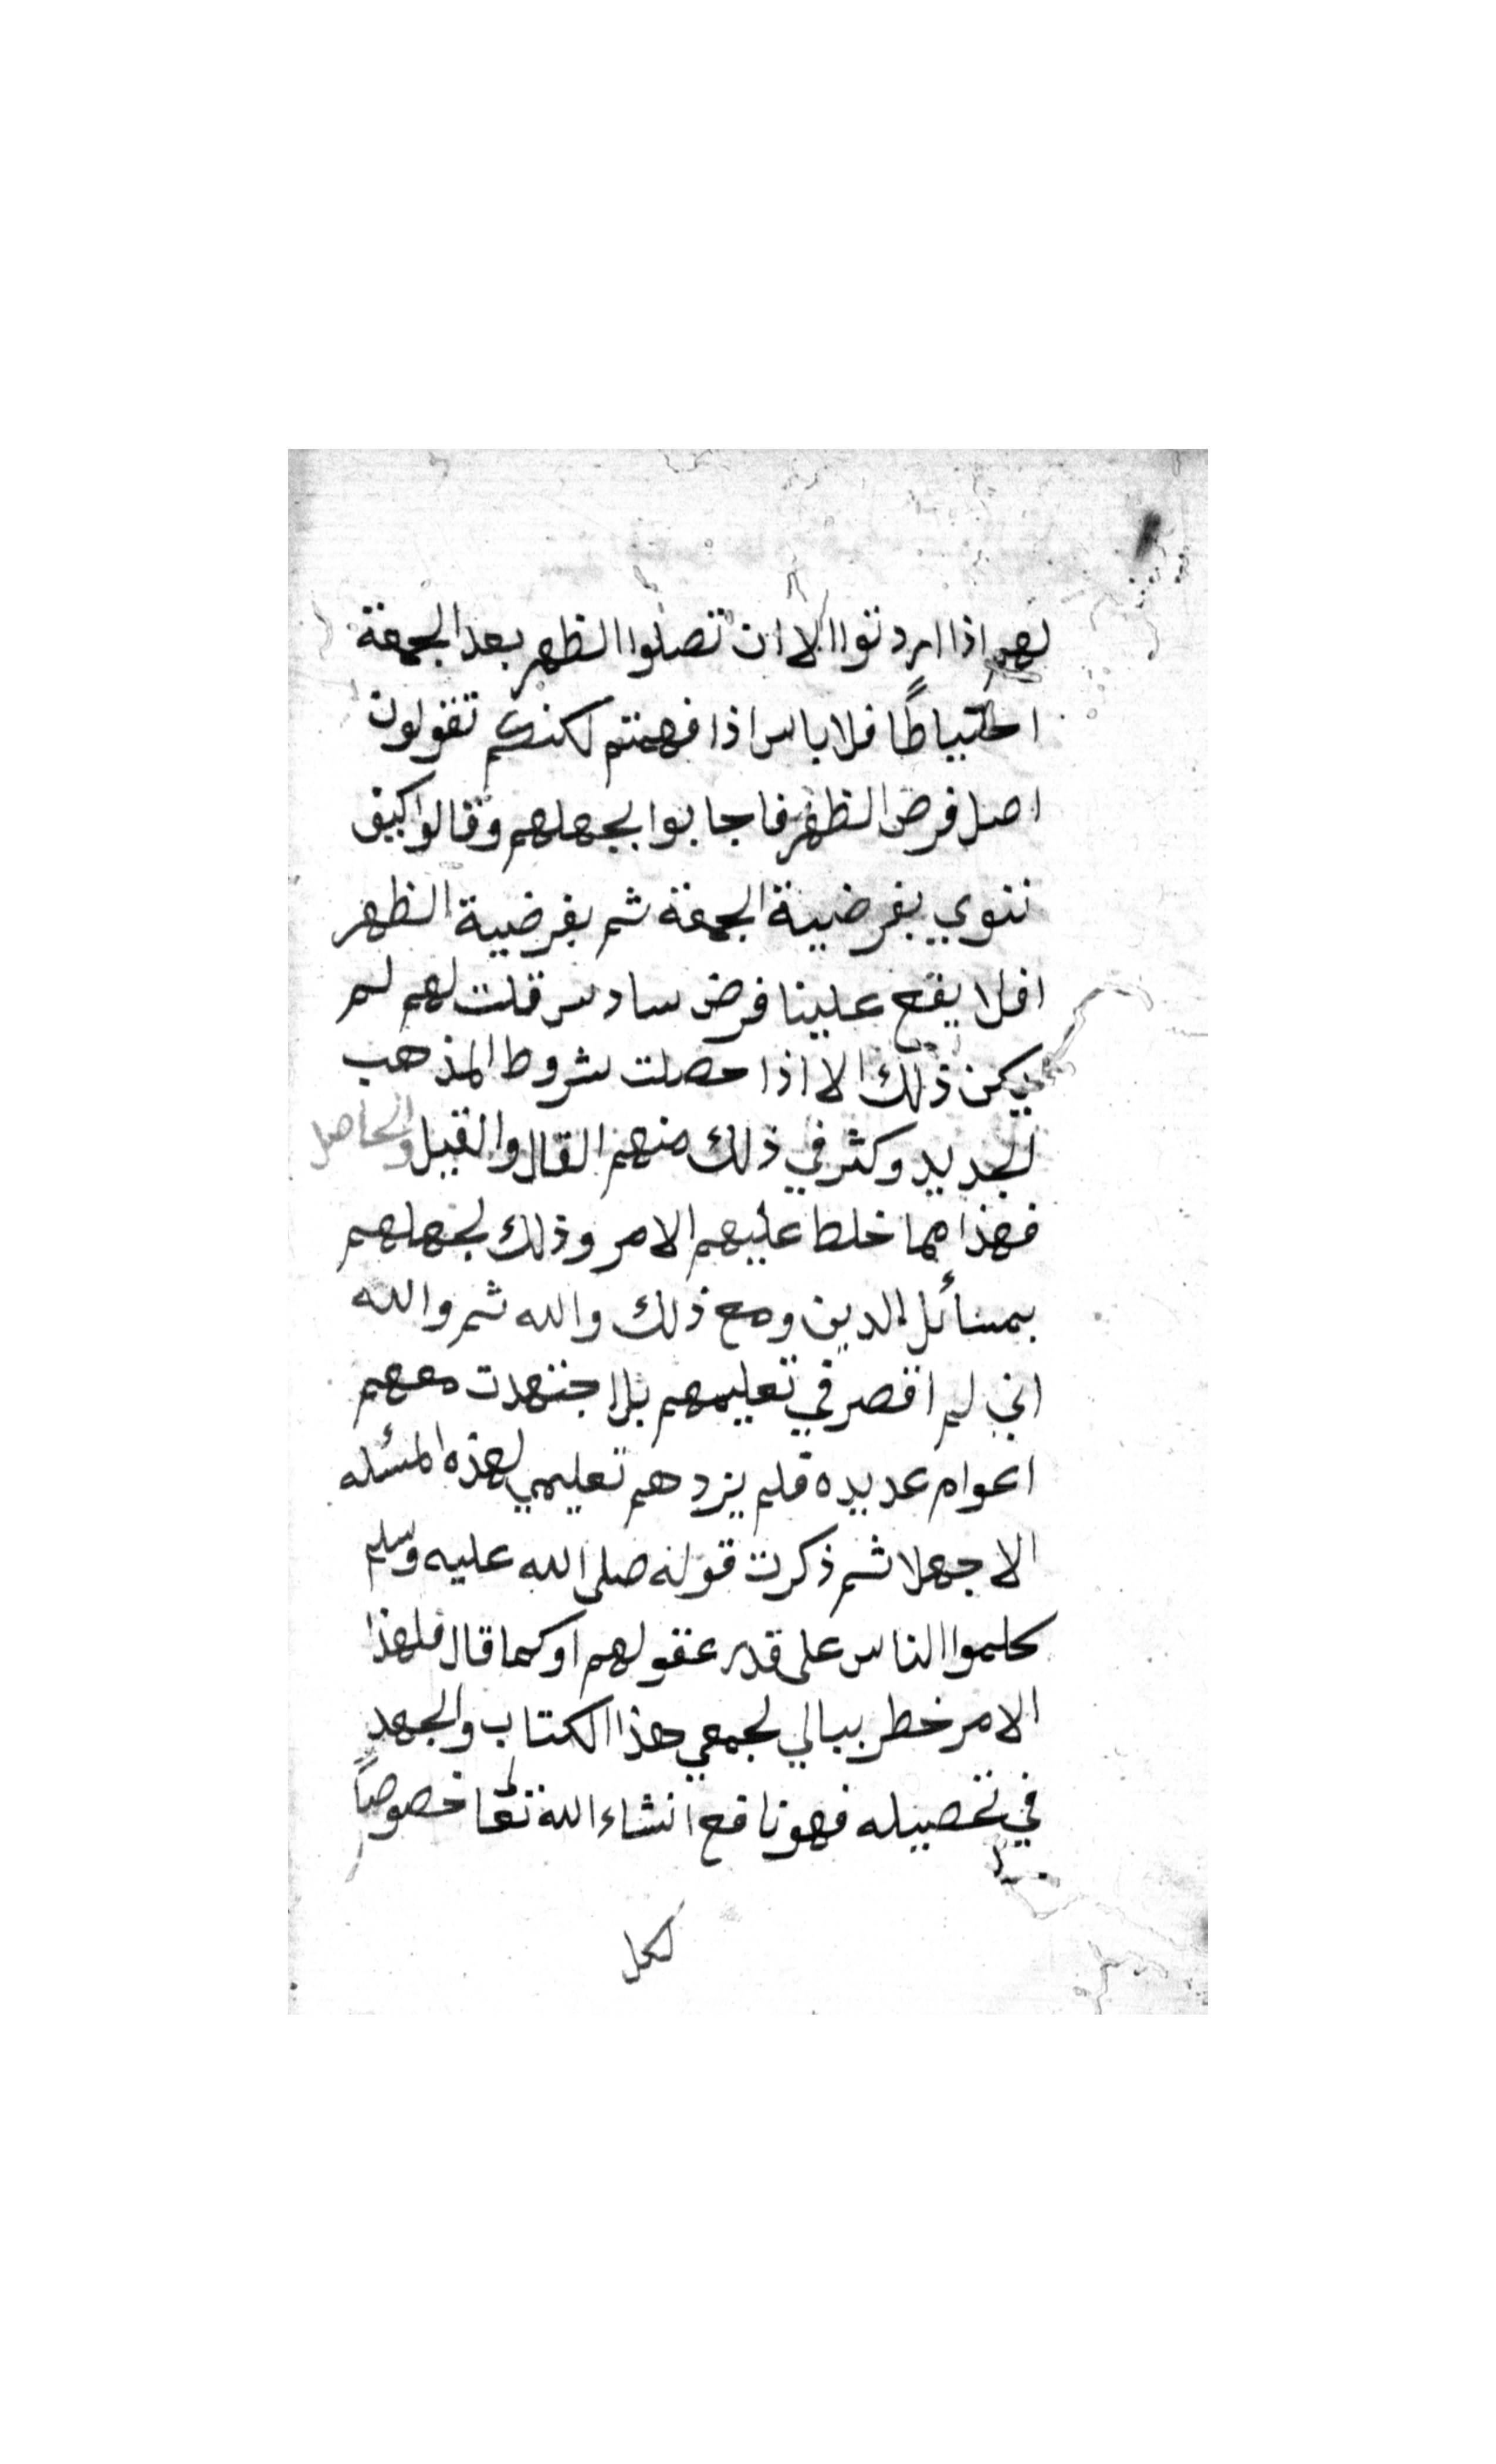 لهم اذا اردتوا الا ان تصلوا الظهر بعد الجمعة
احتياطًا فلا باس اذا فهمتم لكنكم تقولون
اصل فرض الظهر فاجابوا بجهلهم وقالوا كيف
ننوي بفرضية الجمعة ثم بفرضية الظهر
افلا يقع علينا فرض سادس قلت لهم لم
يكن ذلك الا اذا حصلت شروط المذهب
الجديد وكثر في ذلك منهم القال والقيل والحاصل
فهذا مما خلط عليهم الامر وذلك لجهلهم
بمسائل الدين ومع ذلك والله ثم والله
اني لم اقصر في تعليمهم بل اجتهدت معهم
اعوام عديده فلم يزدهم تعليمي لهذه المسئله
الا جهلا ثم ذكرت قوله صلى الله عليه وسلم
كلموا الناس على قدر عقولهم او كما قال فلهذا
الامر خطر ببالي لجمعي هذا الكتاب والجهد
في تحصيله فهو نافع انشاء الله تعا خصوصًا
لكل